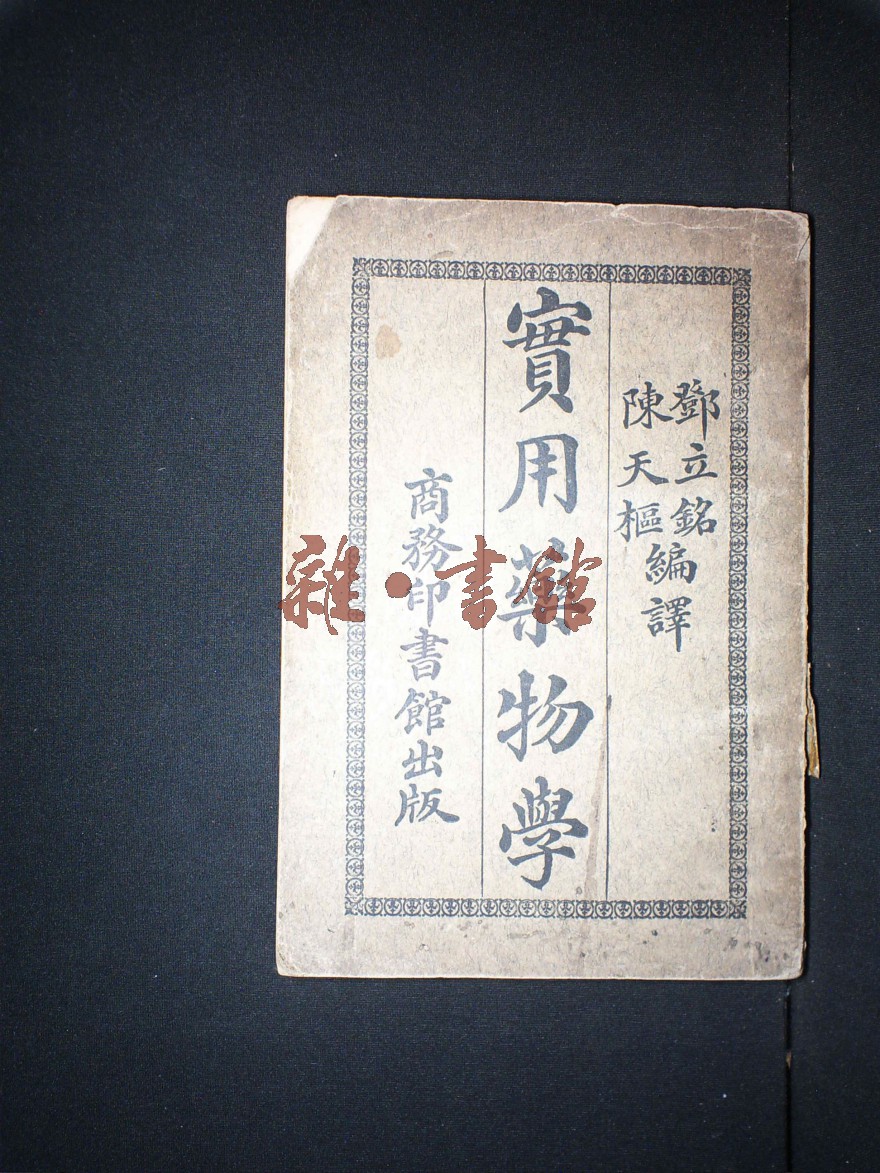 鄧立銘
陳天樞
編譯
實用藥物學
商務印書館出版
雜·書館